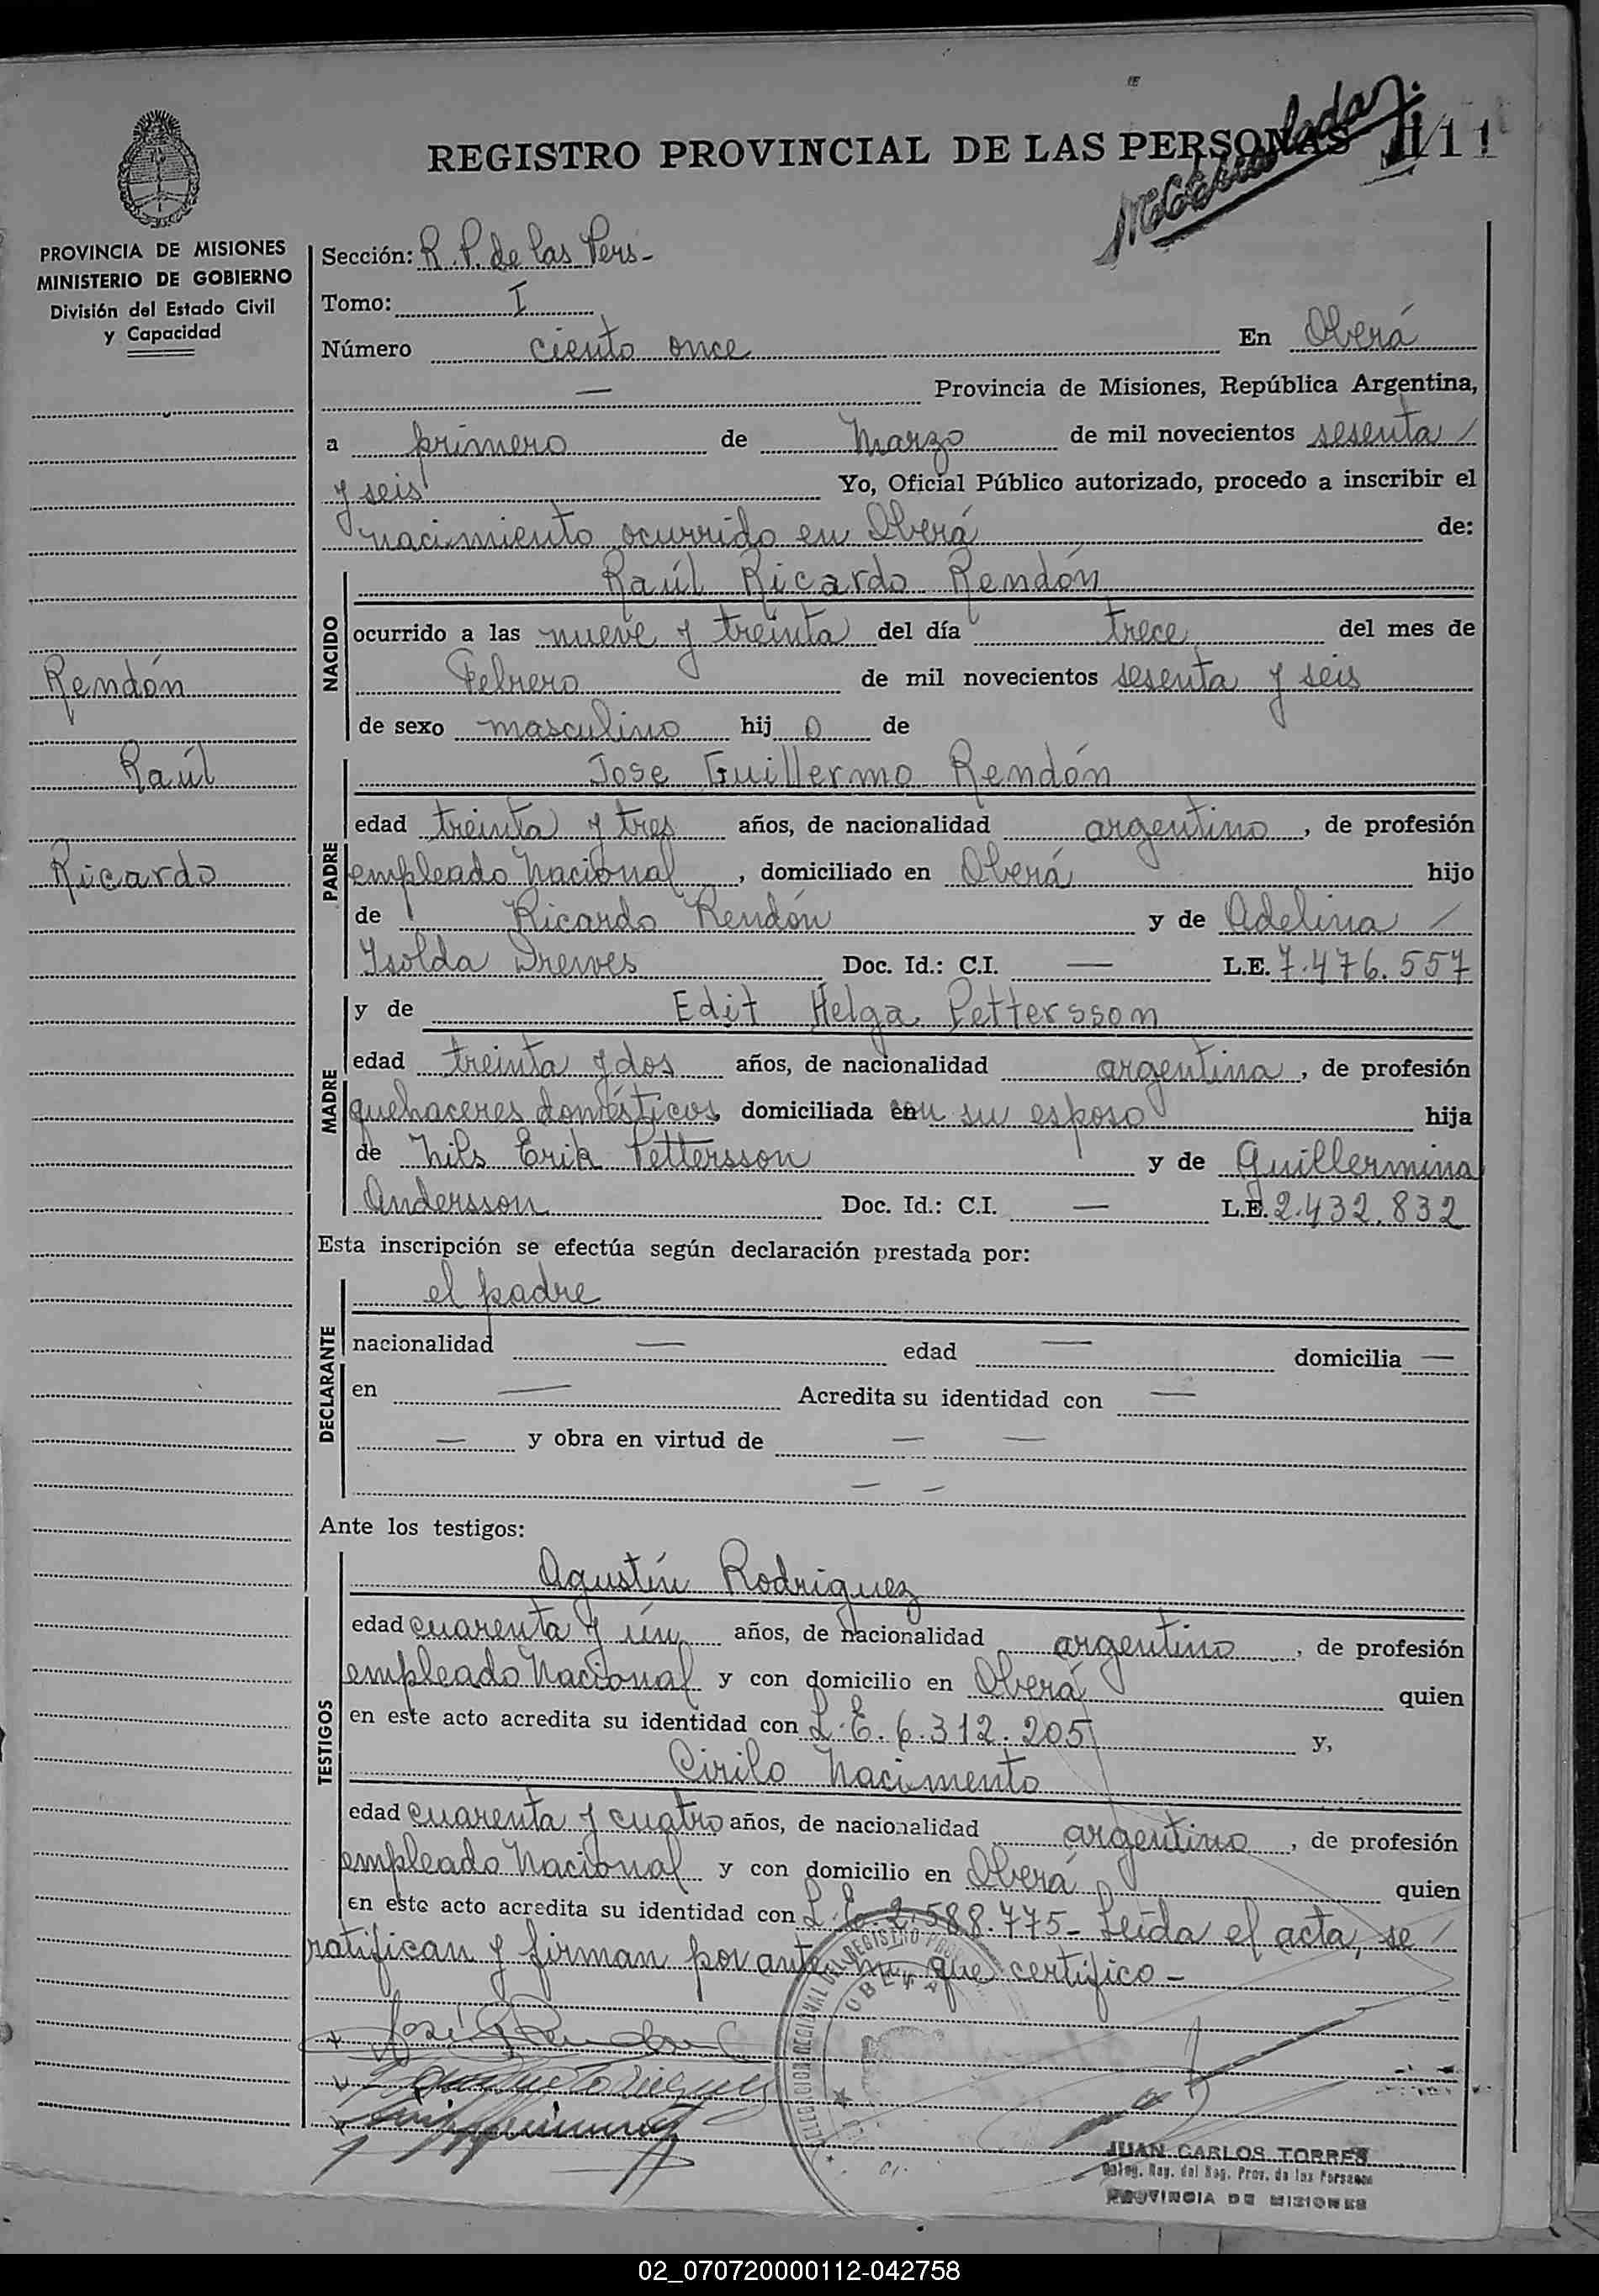 REGISTRO PROVINCIAL DE LAS PERSONAS
111
PROVINCIA DE MISIONES
MINISTERIO DE GOBIERNO
División del Estado Civil
y Capacidad
Rendón
Raúl
Ricardo
Sección: R. P. de las Pers-
Tomo: I
Número ciento once En Oberá
— Provincia de Misiones, República Argentina,
a primero de Marzo de mil novecientos sesenta /
y seis Yo, Oficial Público autorizado, procedo a inscribir el
nacimiento ocurrido en Oberá de:
NACIDO
Raúl Ricardo Rendón
ocurrido a las nueve y treinta del día trece del mes de
Febrero de mil novecientos sesenta y seis
de sexo masculino hij o de
PADRE
Jose Guillermo Rendón
edad treinta y tres años, de nacionalidad argentino, de profesión
empleado Nacional, domiciliado en Oberá hijo
de Ricardo Rendón y de Adelina /
Isolda Drewes Doc. Id.: C.I. — L.E. 7.476.557
MADRE
y de Edit Helga Pettersson
edad treinta y dos años, de nacionalidad argentina, de profesión
quehaceres domésticos, domiciliada en con su esposo hija
de Nils Erik Pettersson y de Guillermina
Andersson Doc. Id.: C.I. — L.E. 2.432.832
Esta inscripción se efectúa según declaración prestada por:
DECLARANTE
el padre
nacionalidad — edad — domicilia —
en — Acredita su identidad con —
— y obra en virtud de — —
— —
Ante los testigos:
TESTIGOS
Agustín Rodriguez
edad cuarenta y ún años, de nacionalidad argentino, de profesión
empleado Nacional y con domicilio en Oberá quien
en este acto acredita su identidad con L.E. 6.312.205 y,
Cirilo Nacimento
edad cuarenta y cuatro años, de nacionalidad argentino, de profesión
empleado Nacional y con domicilio en Oberá quien
en este acto acredita su identidad con L.E. 2.588.775- Leída el acta, se /
ratifican y firman por ante mi que certifico-
OBERA
JUAN CARLOS TORRES
Deleg. Reg. del Reg. Prov. de las Personas
PROVINCIA DE MISIONES
02_070720000112-042758